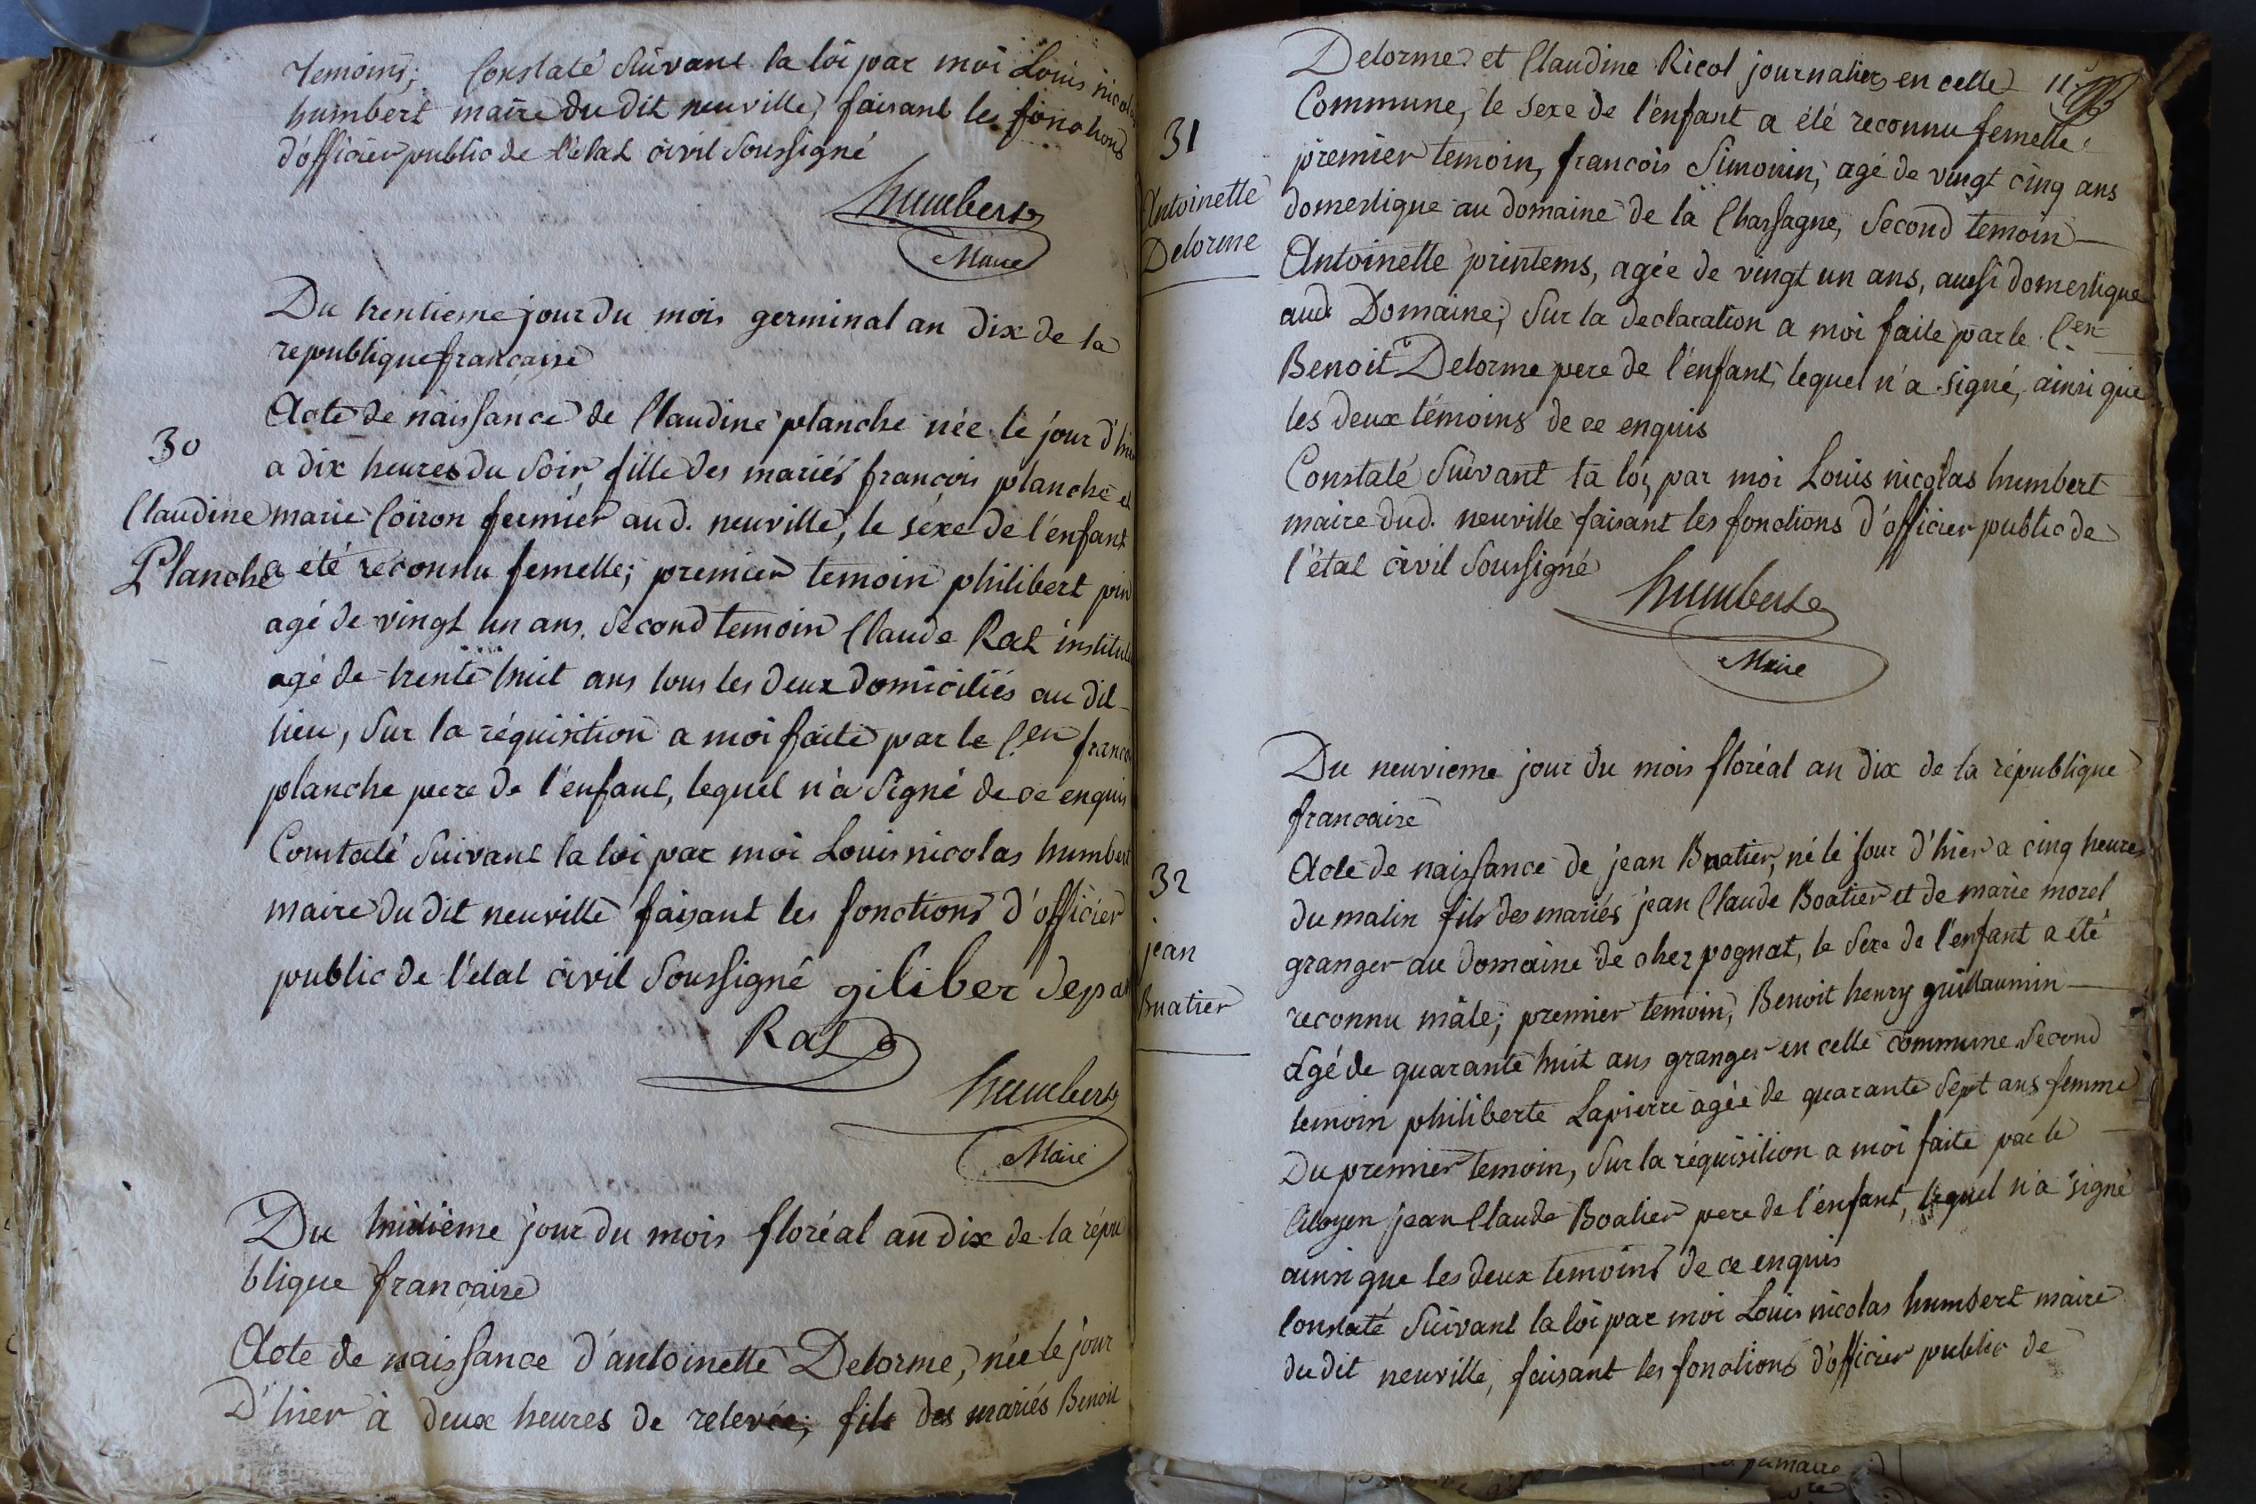 Temoins; Constaté Suivant la loi par moi Louis nicolas
humbert maire du dit neuville, faisant les fonctions
d'officier public de l'état civil Soussigné
humbert
Maire
Du trentieme jour du mois germinal an dix de la
republique française
Acte de naissance de Claudine planche née le jour d'hier
30
a dix heures du Soir, fille des mariés françois planche et
Claudine
marie Coiron fermier aud. neuville, le sexe de l'enfant
Planche
a été reconnu femelle; premier temoin philibert
agé de vingt un ans. Second temoin Claude Rat
agé de trente huit ans tous les deux domiciliés au dit
lieu, Sur la réquisition a moi faite par le Cen
planche pere de l'enfant, lequel n'a Signé de ce enquis
Constaté Suivant la loi par moi Louis nicolas humbert
maire du dit neuville faisant les fonctions d'officier
public de l'état civil Soussigné giliber
Rat
humbert
Maire
Du huitième jour du mois floréal an dix de la répu
blique française
Acte de naissance d'antoinette Delorme, née le jour
D'hier à deux heures de relevée; fille des mariés Benoit
Delorme et Claudine Ricol journaliers en celle
11
31
Antoinette
Delorme
Commune, le Sexe de l'enfant a été reconnu femelle
premier temoin, francois Simonin, agé de vingt cinq ans
domestique au domaine de la Chassagne, Second temoin
Antoinette printems, agée de vingt un ans, aussi domestique
aud. Domaine; Sur la declaration a moi faite par le Cen
Benoit Delorme pere de l'enfant, lequel n'a signé, ainsi que
les deux témoins de ce enquis
Constaté Suivant la loi, par moi Louis nicolas humbert
maire dud. neuville faisant les fonctions d'officier public de
l'état civil Soussigné
humbert
Maire
Du neuvieme jour du mois floréal an dix de la république
francaise
32
jean
Buatier
Acte de naissance de jean Buatier, né le jour d'hier a cinq heures
du matin fils des mariés jean Claude Boatier et de marie morel
granger au domaine de chez pognat, le Sexe de l'enfant a été
reconnu mâle; premier temoin, Benoit henry guillaumin
agé de quarante huit ans granger en celle commune Second
temoin philiberte Lapierre agée de quarante Sept ans femme
Du premier temoin, Sur la réquisition a moi faite par le
Citoyen jean Claude Boatier pere de l'enfant, lequel n'a signé
ainsi que les deux temoins de ce enquis
Constaté Suivant la loi par moi Louis nicolas humbert maire
du dit neuville, faisant les fonctions d'officier public de